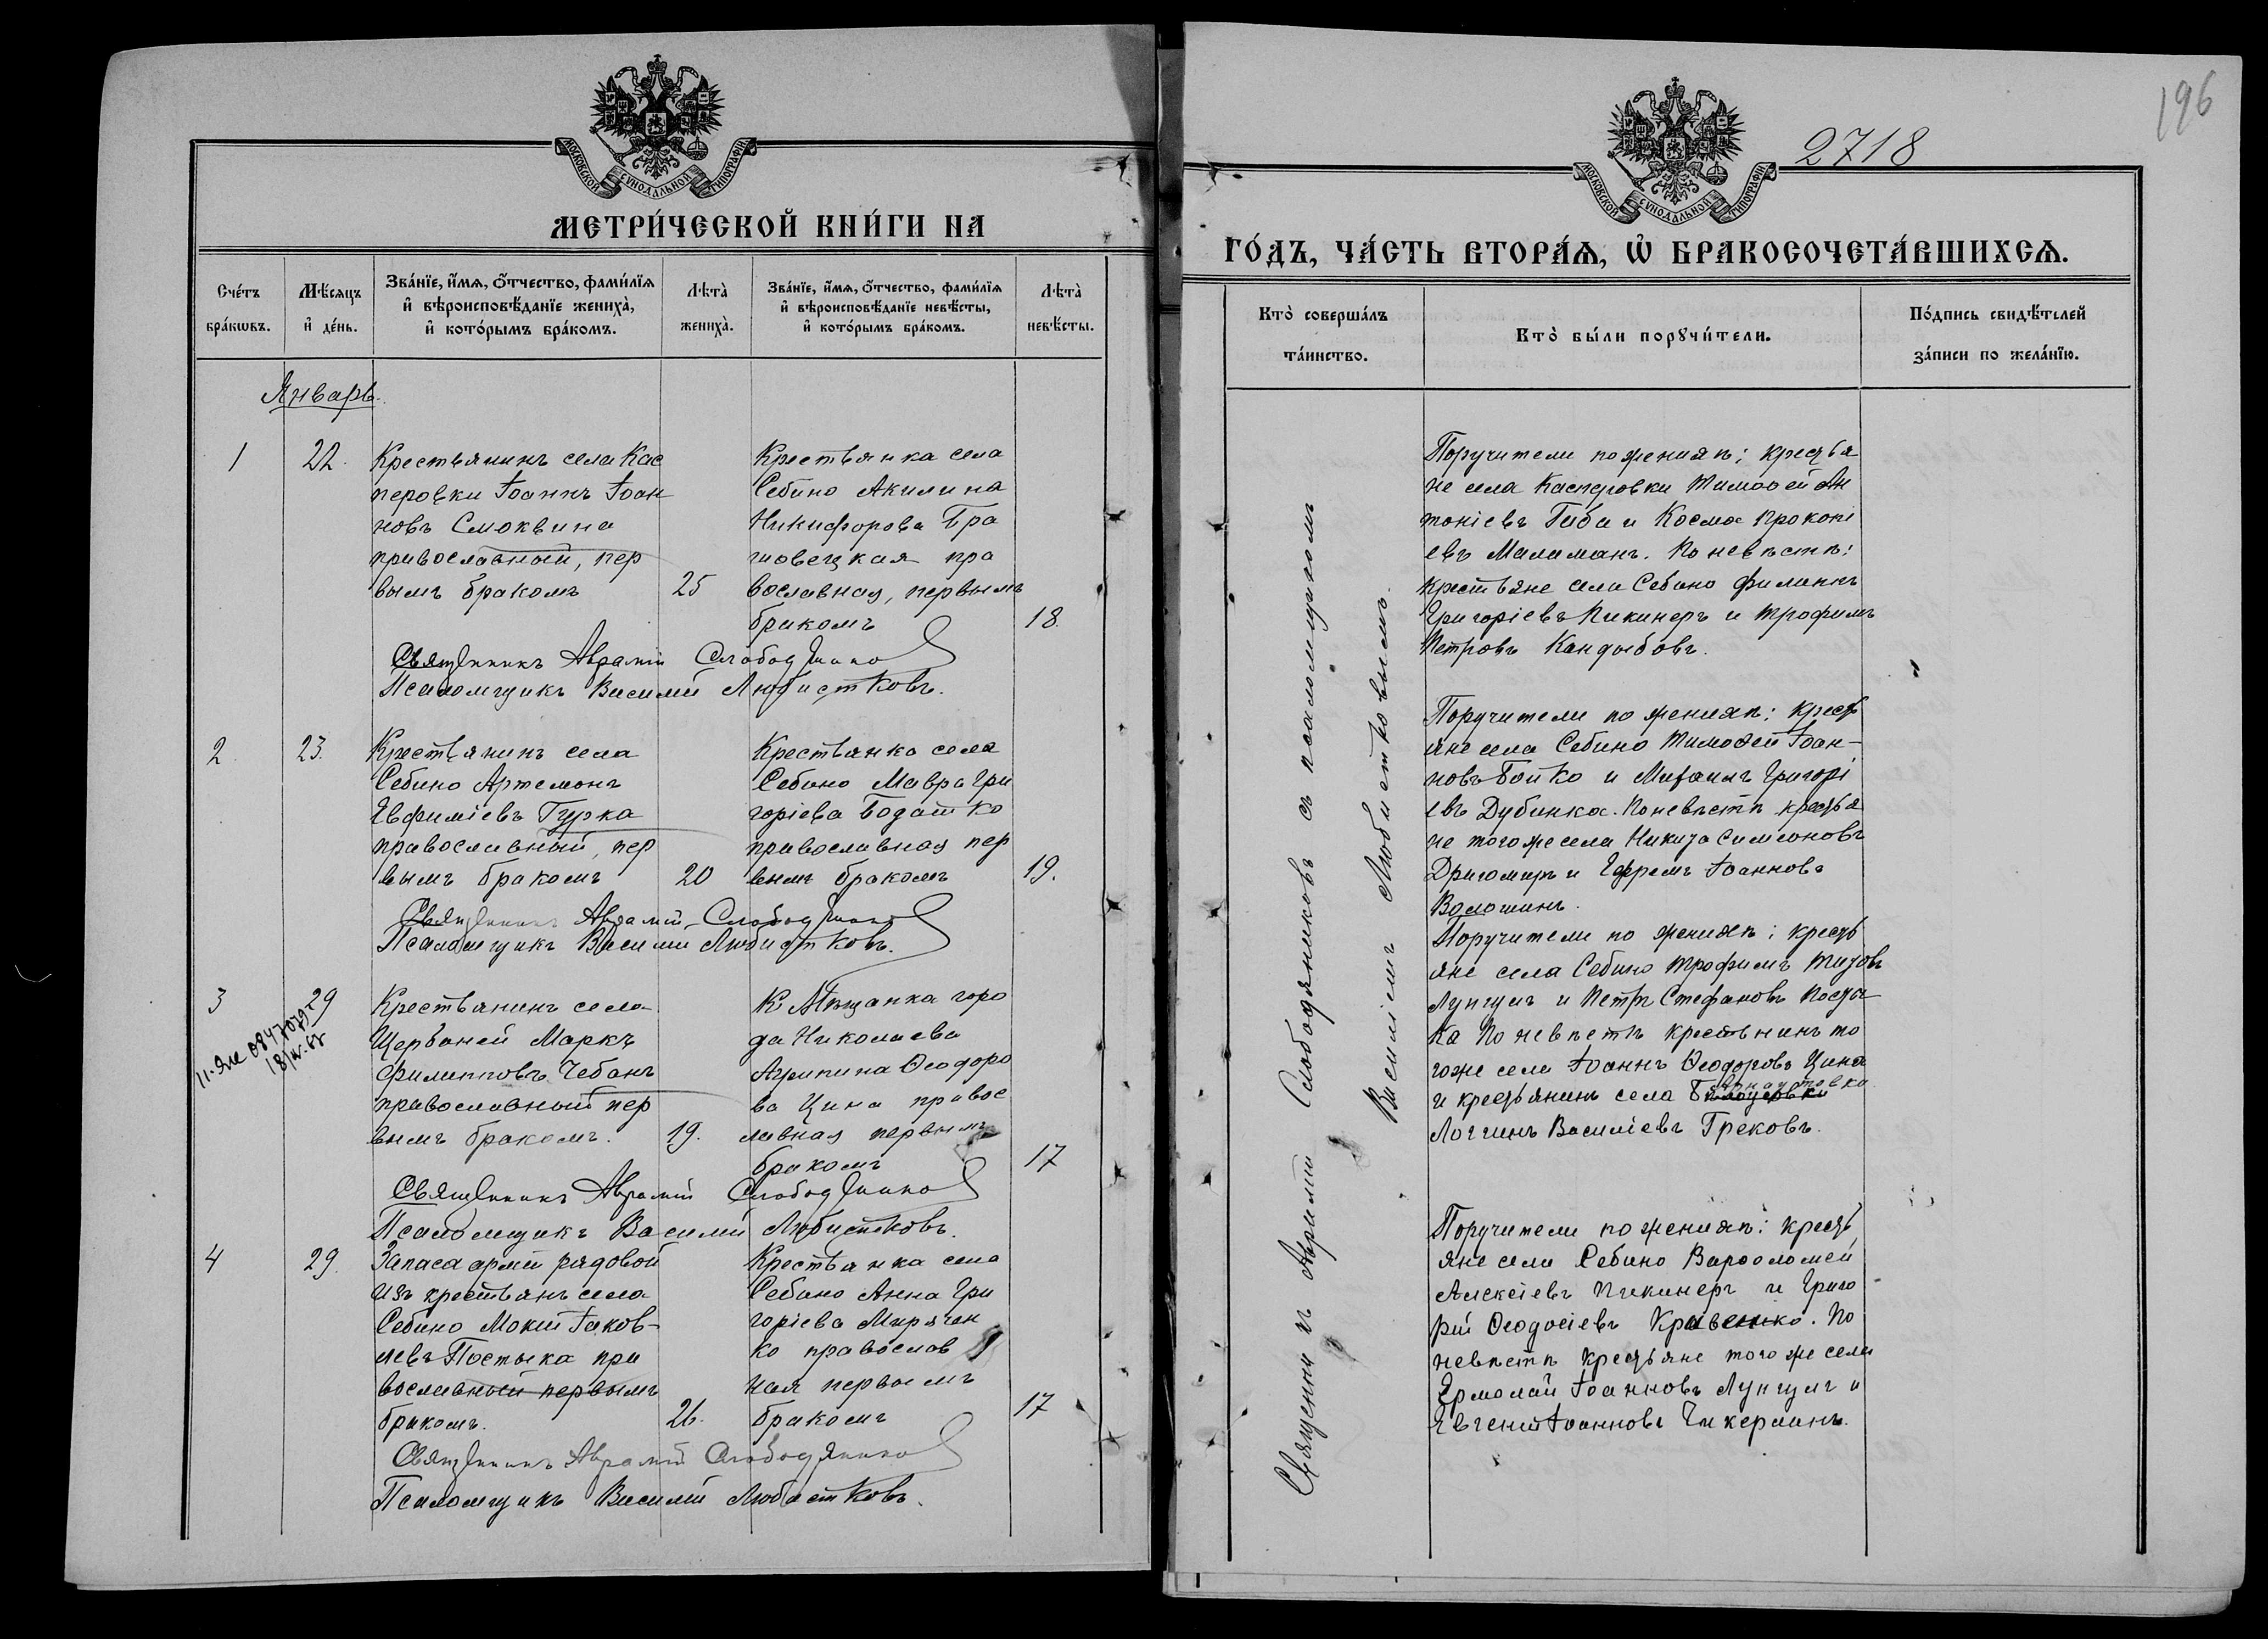 МОСКОВСКОЙ СѴНОДАЛЬНОЙ ТИПОГРАФІИ
МЕТРИ́ЧЕСКОЙ КНИ́ГИ НА
Сче́тъ бра́кѡвъ.
Мѣ́сяцъ и҆ де́нь.
Зва́нїе, и҆́мѧ, ѻ҆́тчество, фами́лїѧ и҆ вѣроисповѣ́данїе жениха̀, и҆ кото́рымъ бра́комъ.
Лѣта̀ жениха̀.
Зва́нїе, и҆́мѧ, ѻ҆́тчество, фами́лїѧ и҆ вѣроисповѣ́данїе невѣ́сты, и҆ кото́рымъ бра́комъ.
Лѣта̀ невѣ́сты.
Январь.
1
22.
Крестьянинъ села Кас
перовки Іоаннъ Іоан
новъ Смоквина
православный, пер
вымъ бракомъ
25
Крестьянка села
Себино Акилина
Никифорова Бра
вославная, первымъ
бракомъ
18.
Священникъ Аврамій Слободяников
Псаломщикъ Василій Любистковъ.
2
23.
Крестьянинъ села
Себино Артемонъ
Евфиміевъ Гурка
православный, пер
вымъ бракомъ
20
Крестьянка села
Себино Мавра Гри
горіева Бодашко
православная пер
вымъ бракомъ
19.
Священникъ Аврамій Слободяников
Псаломщикъ Василій Любистковъ.
3
29
18/IV-68
Крестьянинъ села
Щербаней Маркъ
Филипповъ Чебанъ
православный пер
вымъ бракомъ.
19.
Мѣщанка горо
да Николаева
Агрипина Ѳеодоро
ва Цина правос
лавная первымъ
бракомъ
17
Священникъ Аврамій Слободяников
Псаломщикъ Василій Любистковъ.
4
29.
Запаса арміи рядовой
изъ крестьянъ села
Себино Мокій Іаков-
левъ Постыка пра
вославный первымъ
бракомъ.
26.
Крестьянка села
Себино Анна Гри
горіева Мирячен
ко православ
ная первымъ
бракомъ
17
Священникъ Аврамій Слободяников
Псаломщикъ Василій Любистковъ.
196
2718
МОСКОВСКОЙ СѴНОДАЛЬНОЙ ТИПОГРАФІИ
ГО́ДЪ, ЧА́СТЬ ВТОРА́Ѧ, Ѡ҆ БРАКОСОЧЕТА́ВШИХСѦ.
Кто̀ соверша́лъ та́инство.
Кто̀ бы́ли порꙋчи́тели.
По́дпись свидѣ́телей за́писи по жела́нїю.
Священникъ Аврамій Слободяниковъ съ псаломщикомъ
Василіемъ Любистковымъ.
Поручители по женихѣ: крестья
не села Касперовки Тимоѳей Ан
тоніевъ Гиба и Косма Прокопі
евъ Малиманъ. По невѣстѣ:
крестьяне села Себино Филиппъ
Григоріевъ Пикинеръ и Трофимъ
Петровъ Кандыбовъ.
Поручители по женихѣ: кресть
яне села Себино Тимоѳей Іоан-
новъ Бойко и Михаилъ Григорі
евъ Дубинка. По невѣстѣ крестья
не того же села Никита Симеоновъ
Дригомиръ и Ефремъ Іоанновъ
Волошинъ.
Поручители по женихѣ: кресть
яне села Себино Трофимъ Титовъ
Лунгулъ и Петръ Стефановъ Посты
ка По невѣстѣ крестьнинъ то
гоже села Іоаннъ Ѳеодоровъ Цина
и крестьянинъ села
Логгинъ Василіевъ Грековъ.
Поручители по женихѣ: кресть
яне села Себино Варѳоломей
Алексіевъ Пикинеръ и Григо
рій Ѳеодосіевъ Кравенко. По
невѣстѣ крестьяне того же села
Ермолай Іоанновъ Лунгулъ и
Евгеній Іоанновъ Чикерманъ.